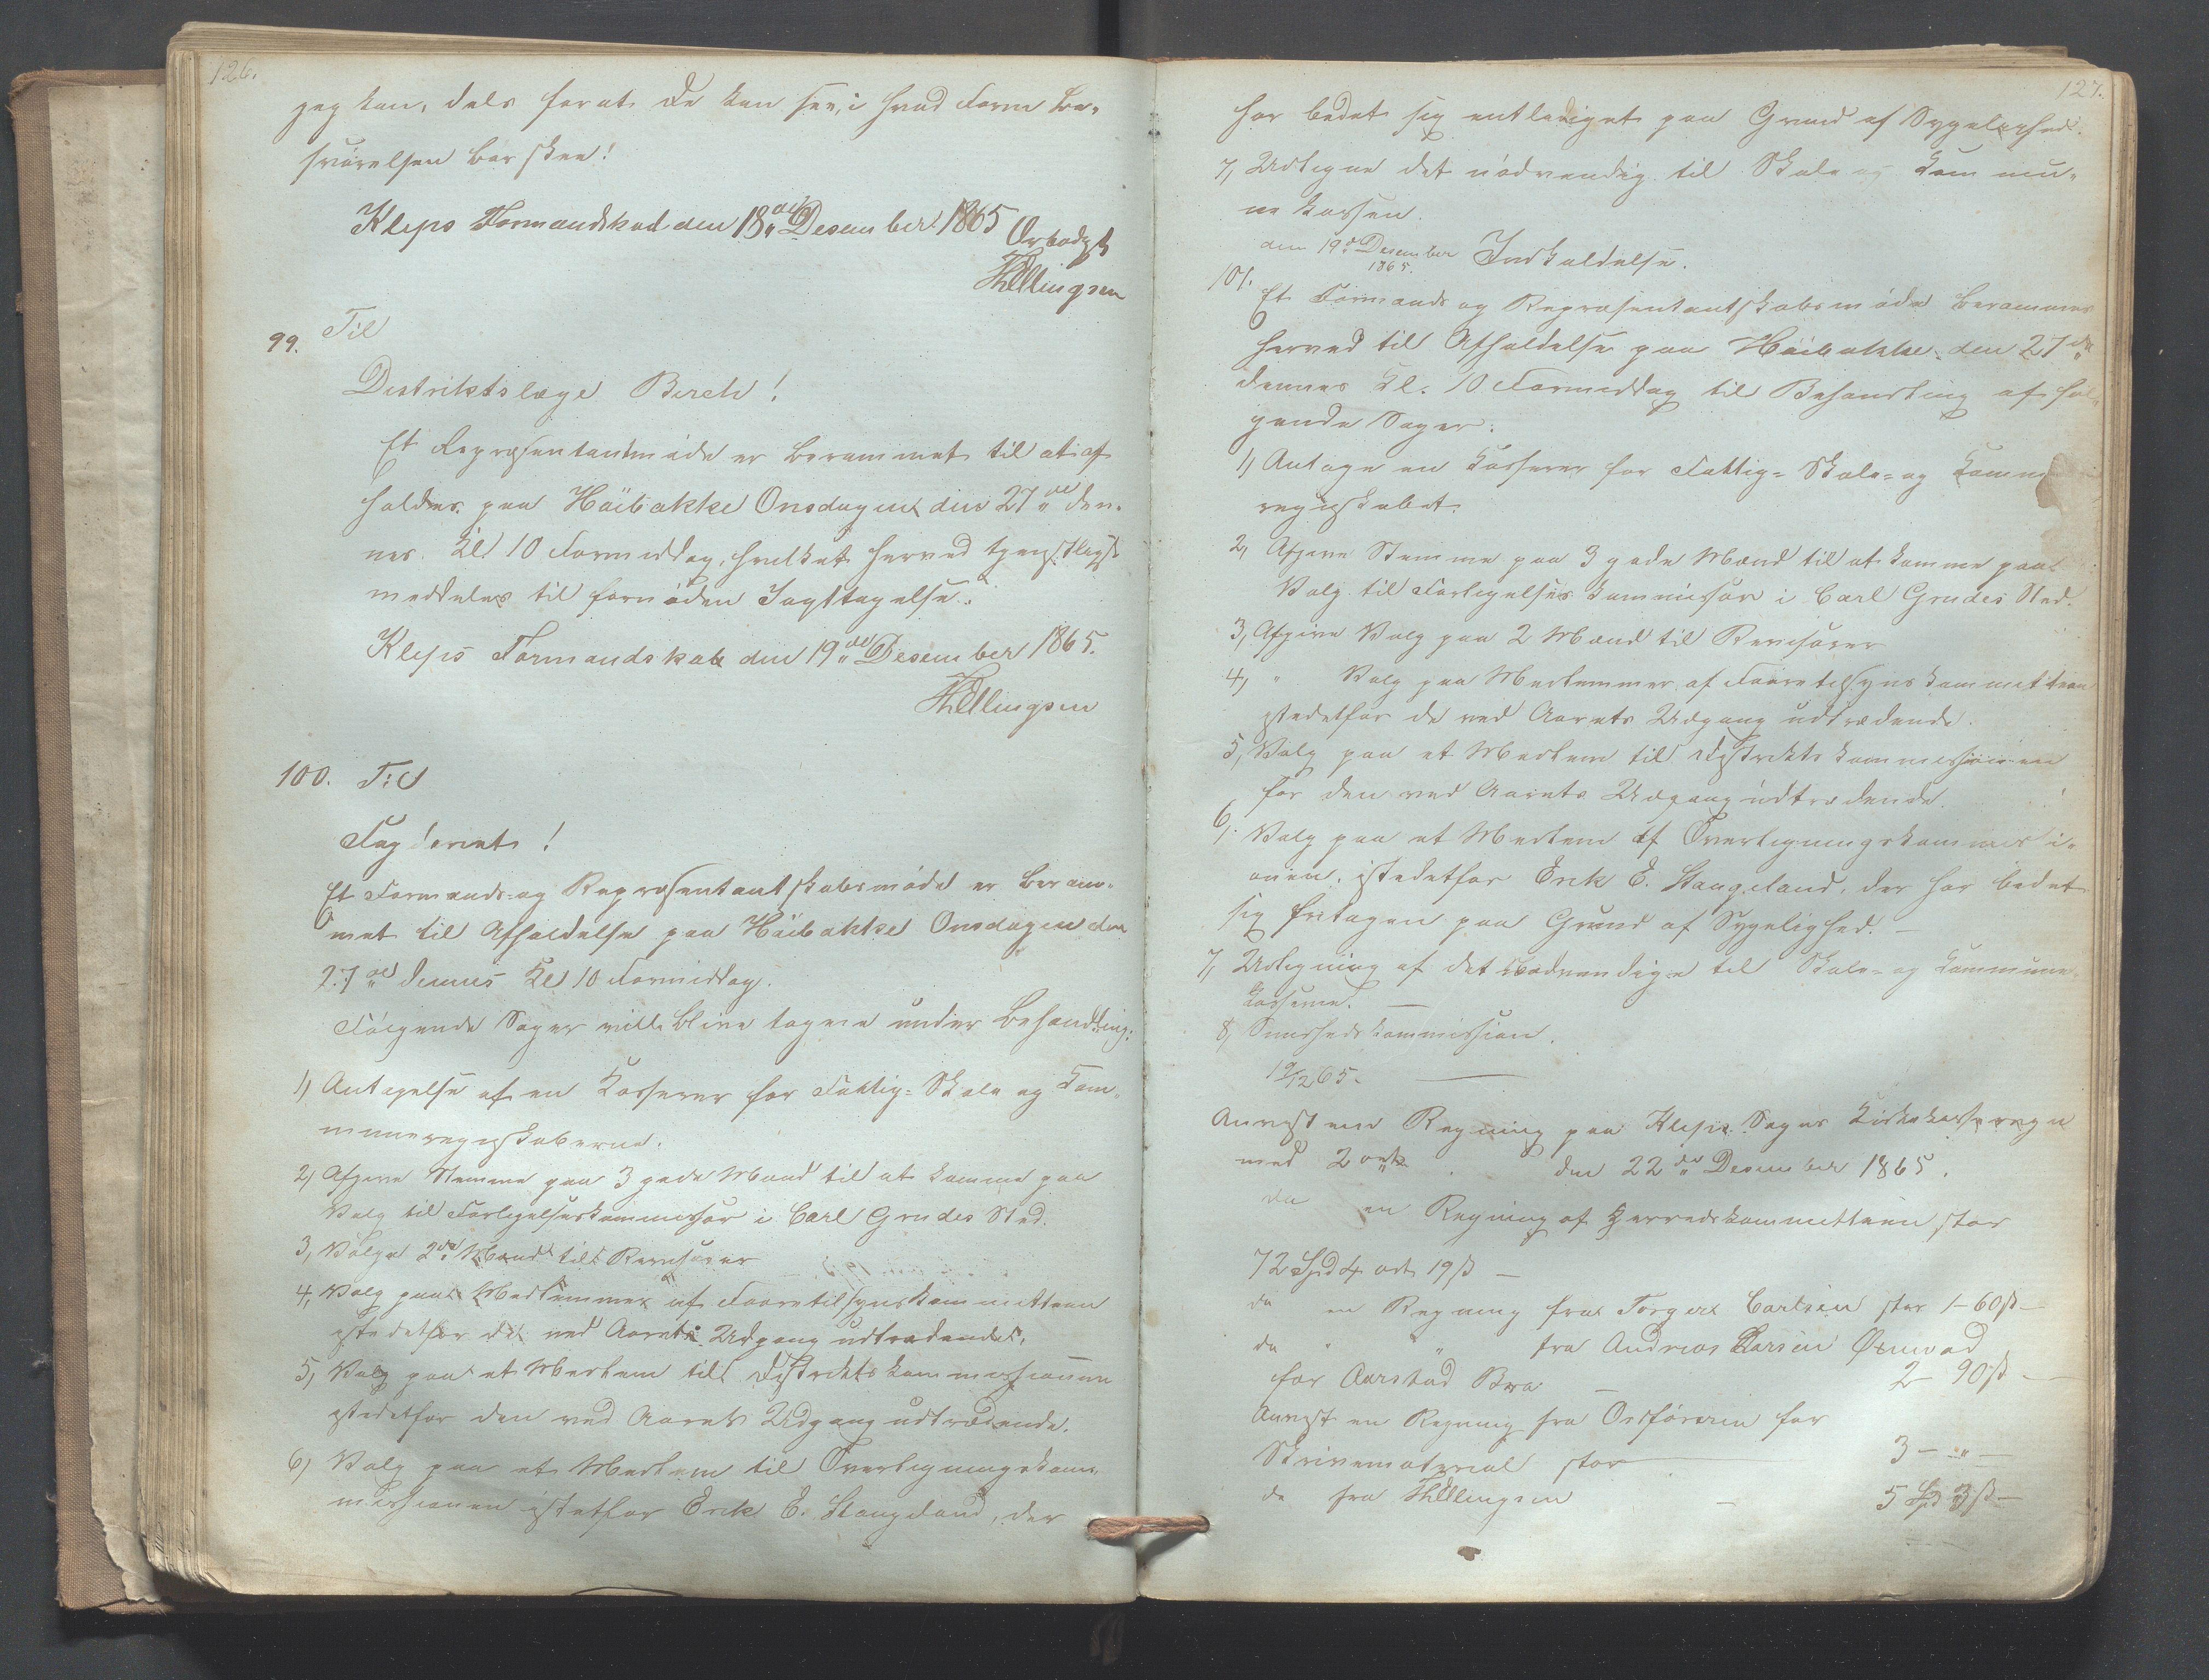 126.
jeg kan, dels forat De kan see, i hvad Form Be-
svarelsen bør skee!
Kleps Formandskab den 18de Desember 1865 Ærbødigst
TEllingsen
99. Til
Distriktslæge Birch!
Et Repræsentantmøde er berammet til at af-
holdes paa Höibakke Onsdagen den 27de den-
nes Kl 10 Formiddag, hvilket herved tjenstligst
meddeles til fornøden Iagttagelse.
Kleps Formandskab den 19de Desember 1865.
TEllingsen
100. Til
Fogderiet!
Et Formands- og Repræsentantskabsmøde er beram-
met til Afholdelse paa Höibakke Onsdagen den
27de dennes Kl 10 Formiddag.
Følgende Sager ville blive tagne under Behandling:
1) Antagelse af en Kasserer for Fattig- Skole og Kom-
muneregnskaberne.
2) Afgive Stemme paa 3 gode Mænd til at komme paa
Valg til Forligelseskommissær i Carl Grudes Sted.
3) Vælge 2de Mænd til Revisorer
4) Valg paa Medlemmer af Faaretilsynskommitteen
istedetfor de ved Aarets Udgang udtrædende.
5) Valg paa et Medlem til Distriktskommissionen
istedetfor den ved Aarets Udgang udtrædende.
6) Valg paa et Medlem til Overligningskom-
missionen istetfor Erik E. Stangeland, der
127.
har bedet sig entlediget paa Grund af Sygelighed.
7, Udligne det nødvendig til Skole og Kommu-
nekassen.
den 19de Desember 1865. Indkaldelse.
101. Et Formands og Repræsentantskabsmøde berammes
herved til Afholdelse paa Höibakke den 27de
dennes Kl. 10 Formiddag til Behandling af føl-
gende Sager:
1) Antage en Kasserer for Fattig- Skole- og Komm
regnskabet.
2, Afgive Stemme paa 3 gode Mænd til at komme paa
Valg til Forligelseskommissær i Carl Grudes Sted.
3, Afgive Valg paa 2 Mænd til Revisorer
4, " Valg paa Medlemmer af Faaretilsynskommitteen
istedetfor de ved Aarets Udgang udtrædende.
5, Valg paa et Medlem til Distriktskommissionen
for den ved Aarets Udgang udtrædende.
6, Valg paa et Medlem af Overligningskommissi-
onen, istedetfor Erik E. Stangeland, der har bedet
sig fritagen paa Grund af Sygelighed. —
7, Udligning af det nødvendige til Skole- og Kommune-
kasserne. —
8, Sundhedskommission.
19/12 65. —
Anvist en Regning paa Kleps Sogns Kirkekasse
med 2 ort . den 22de Desember 1865.
do en Regning af Herredskommitteen stor
72 Spd 4 ort 19 ß —
do en Regning fra Torger Carlsen stor 1-60 ß —
do " " fra Andreas Larsen
for Aarstad Bro — 2- 90 ß —
Anvist en Regning fra Ordføreren for
Skrivematerial stor — 3 — " —
do fra TEllingsen — 5 Spd 3 ß —